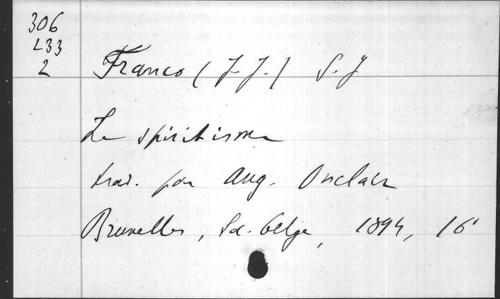 306
L33
2
Franco (J.J.) S.J
Le spiritisme
trad. par Aug. Onclair
Bruxelles, Soc. belge, 1894, 16°